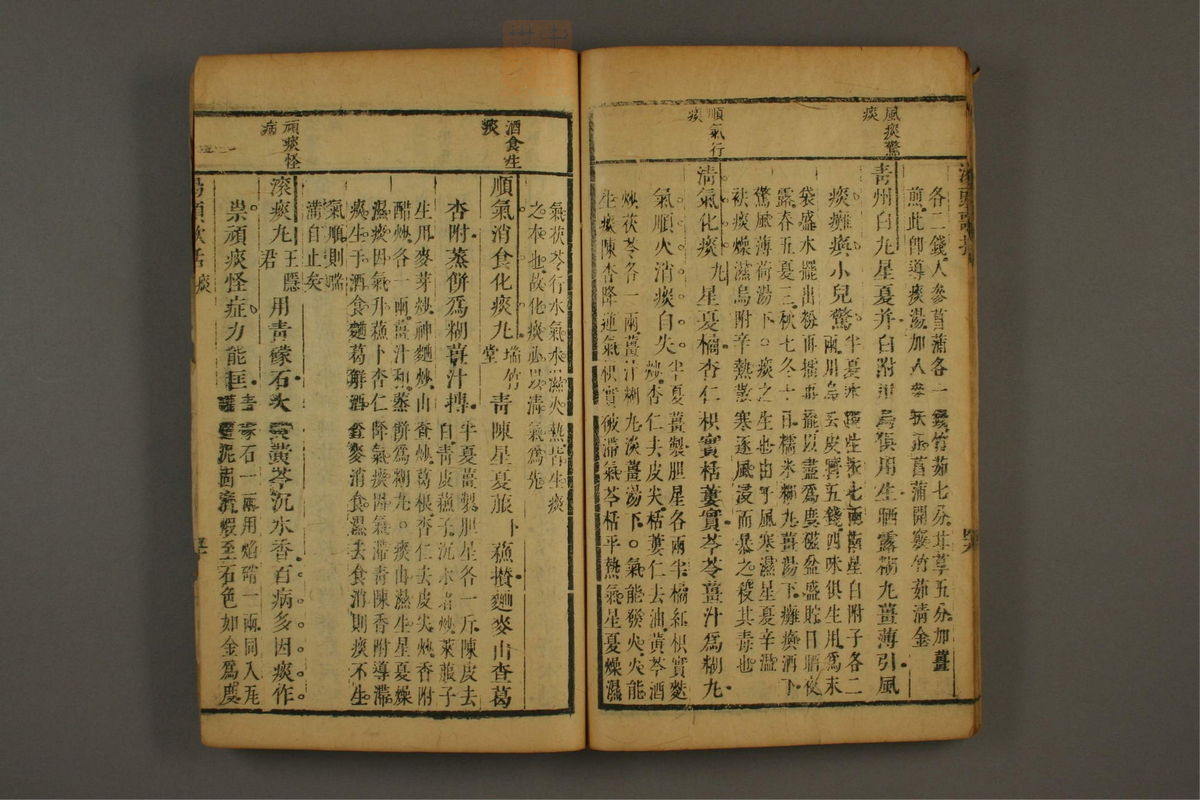 各二錢人參菖蒲各一錢竹茹七分甘草五分加薑
煎此卽導痰湯加人參菖蒲開竅竹茹淸金
風痰驚
痰
靑州白丸星夏并白附川烏俱用生晒露糊丸薑薄引風
痰癱瘓小兒驚
半夏水浸生衣七兩南星白附子各二
兩川烏去皮臍五錢四味俱生用爲末
袋盛水擺出粉再擂再擺以盡爲度磁盆盛貯日晒夜
露春五夏三秋七冬十日糯米糊丸薑湯下癱瘓酒下
驚風薄荷湯下○痰之生也由于風寒濕星夏辛溫
袪痰燥濕烏附辛熱散寒逐風浸而暴之殺其毒也
順氣行
痰
淸氣化痰丸星夏橘杏仁枳實栝蔞實芩苓薑汁爲糊丸
氣順火消痰自失
半夏薑製胆星各兩半橘紅枳實麩
炒杏仁去皮尖栝蔞仁去油黃芩酒
炒茯苓各一兩薑汁糊丸淡薑湯下○氣能發火火能
生痰陳杏降逆氣枳實破滯氣芩栝平熱氣星夏燥濕
氣茯苓行水氣水濕火熱皆生痰
之本也故化痰必以淸氣爲先
酒食生
痰
順氣消食化痰丸
瑞竹
堂
靑陳星夏菔
卜
蘇攢麯麥山查葛
杏附蒸餠爲糊薑汁摶
半夏薑製胆星各一斤陳皮去
白靑皮蘇子沉水者炒萊菔子
生用麥芽炒神麯炒山查炒葛根杏仁去皮尖炒香附
醋炒各一兩薑汁和蒸餠爲糊丸○痰由濕生星夏燥
濕痰因氣升蘇卜杏仁降氣痰因氣滯靑陳香附導滯
痰生于酒食麯葛解酒查麥消食濕去食消則痰不生
氣順則喘
滿自止矣
頑痰怪
病
滾痰丸
王隱
君
用靑礞石大黃黃芩沉水香百病多因痰作
祟頑痰怪症力能匡
靑礞石一兩用焰硝一兩同入瓦
罐泥固煅至石色如金爲度